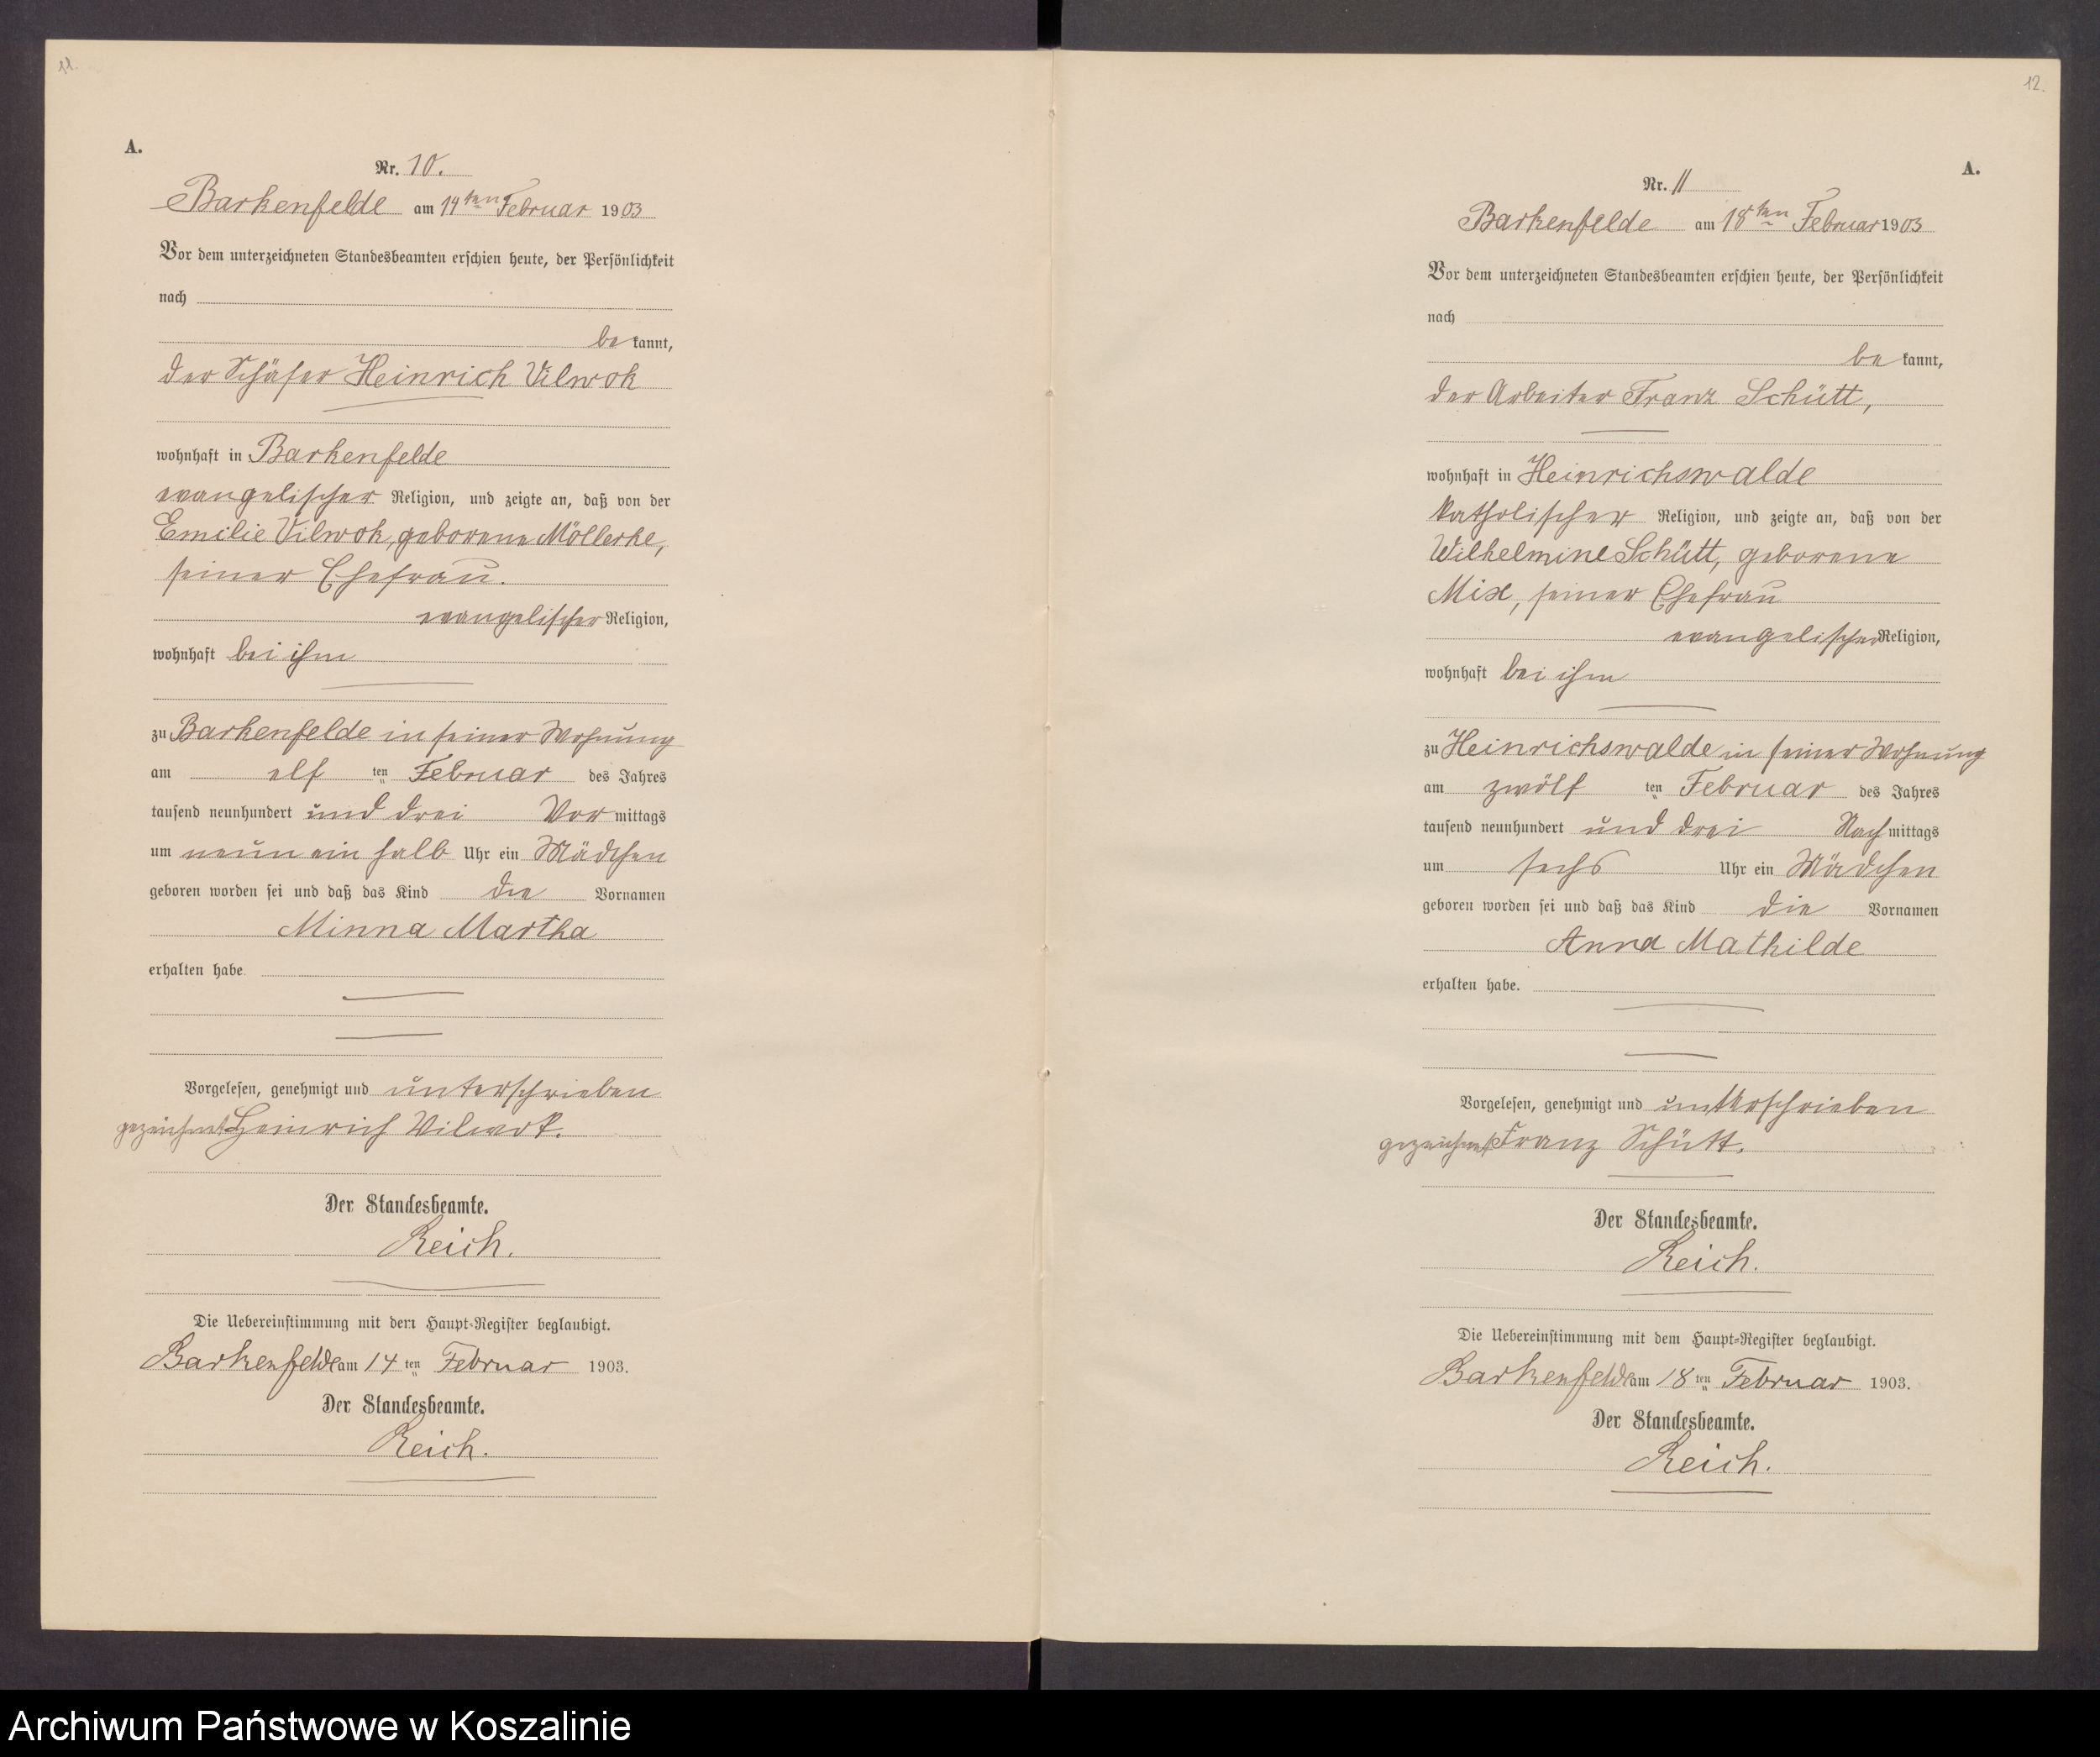 11.
A.
Nr. 10.
Barkenfelde am 14ten Februar 1903
Vor dem unterzeichneten Standesbeamten erschien heute, der Persönlichkeit
nach
be kannt,
der Schäfer Heinrich Vilwok
wohnhaft in Barkenfelde
evangelischer Religion, und zeigte an, daß von der
Emilie Vilwok, geborene Möllerke,
seiner Ehefrau.
evangelischer Religion,
wohnhaft bei ihm
zu Barkenfelde in seiner Wohnung
am elf ten Februar des Jahres
tausend neunhundert und drei Vor mittags
um neun ein halb Uhr ein Mädchen
geboren worden sei und daß das Kind die Vornamen
Minna Martha
erhalten habe.
Vorgelesen, genehmigt und unterschrieben
gezeichnet Heinrich Vilwok.
Der Standesbeamte.
Reich.
Die Uebereinstimmung mit dem Haupt-Register beglaubigt.
Barkenfelde am 14 ten Februar 1903.
Der Standesbeamte.
Reich.
12.
A.
Nr. 11
Barkenfelde am 18ten Februar 1903
Vor dem unterzeichneten Standesbeamten erschien heute, der Persönlichkeit
nach
be kannt,
der Arbeiter Franz Schütt,
wohnhaft in Heinrichswalde
katholischer Religion, und zeigte an, daß von der
Wilhelmine Schütt, geborene
Mix, seiner Ehefrau
evangelischer Religion,
wohnhaft bei ihm
zu Heinrichswalde in seiner Wohnung
am zwölf ten Februar des Jahres
tausend neunhundert und drei Nach mittags
um sechs Uhr ein Mädchen
geboren worden sei und daß das Kind die Vornamen
Anna Mathilde
erhalten habe.
Vorgelesen, genehmigt und unterschrieben
gezeichnet Franz Schütt.
Der Standesbeamte.
Reich.
Die Uebereinstimmung mit dem Haupt-Register beglaubigt.
Barkenfelde am 18 ten Februar 1903.
Der Standesbeamte.
Reich.
Archiwum Państwowe w Koszalinie